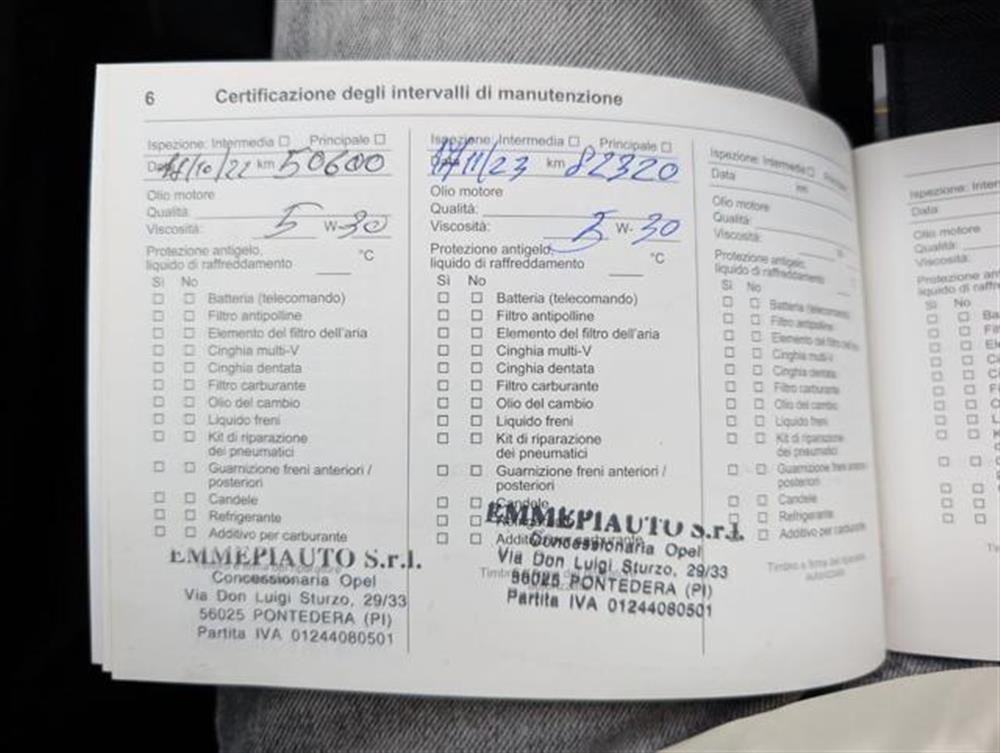 6 Certificazione degli intervalli di manutenzione
Ispezione: Intermedia Principale
Data 18/10/22 km 50600
Olio motore
Qualità:
Viscosità: 5 W-30
Protezione antigelo,
liquido di raffreddamento °C
Sì No
Batteria (telecomando)
Filtro antipolline
Elemento del filtro dell'aria
Cinghia multi-V
Cinghia dentata
Filtro carburante
Olio del cambio
Liquido freni
Kit di riparazione
dei pneumatici
Guarnizione freni anteriori /
posteriori
Candele
Refrigerante
Additivo per carburante
EMMEPIAUTO S.r.l.
Concessionaria Opel
Via Don Luigi Sturzo, 29/33
56025 PONTEDERA (PI)
Partita IVA 01244080501
Ispezione: Intermedia Principale
Data 17/11/23 km 82320
Olio motore
Qualità:
Viscosità: 5 W-30
Protezione antigelo,
liquido di raffreddamento °C
Sì No
Batteria (telecomando)
Filtro antipolline
Elemento del filtro dell'aria
Cinghia multi-V
Cinghia dentata
Filtro carburante
Olio del cambio
Liquido freni
Kit di riparazione
dei pneumatici
Guarnizione freni anteriori /
posteriori
Candele
Additivo per carburante
EMMEPIAUTO S.r.l.
Concessionaria Opel
Via Don Luigi Sturzo, 29/33
56025 PONTEDERA (PI)
Partita IVA 01244080501
Ispezione: Intermedia Principale
Data km
Olio motore
Qualità:
Viscosità: W-
Protezione antigelo,
liquido di raffreddamento
Sì No
Batteria (telecomando)
Filtro antipolline
Elemento del filtro dell'aria
Cinghia multi-V
Cinghia dentata
Filtro carburante
Olio del cambio
Liquido freni
Kit di riparazione
dei pneumatici
Guarnizione freni anteriori
posteriori
Candele
Refrigerante
Additivo per carburante
Timbro e firma del riparatore
autorizzato
Ispezione: Inter
Data
Olio motore
Qualità:
Viscosità:
Protezione an
liquido di raff
Sì No